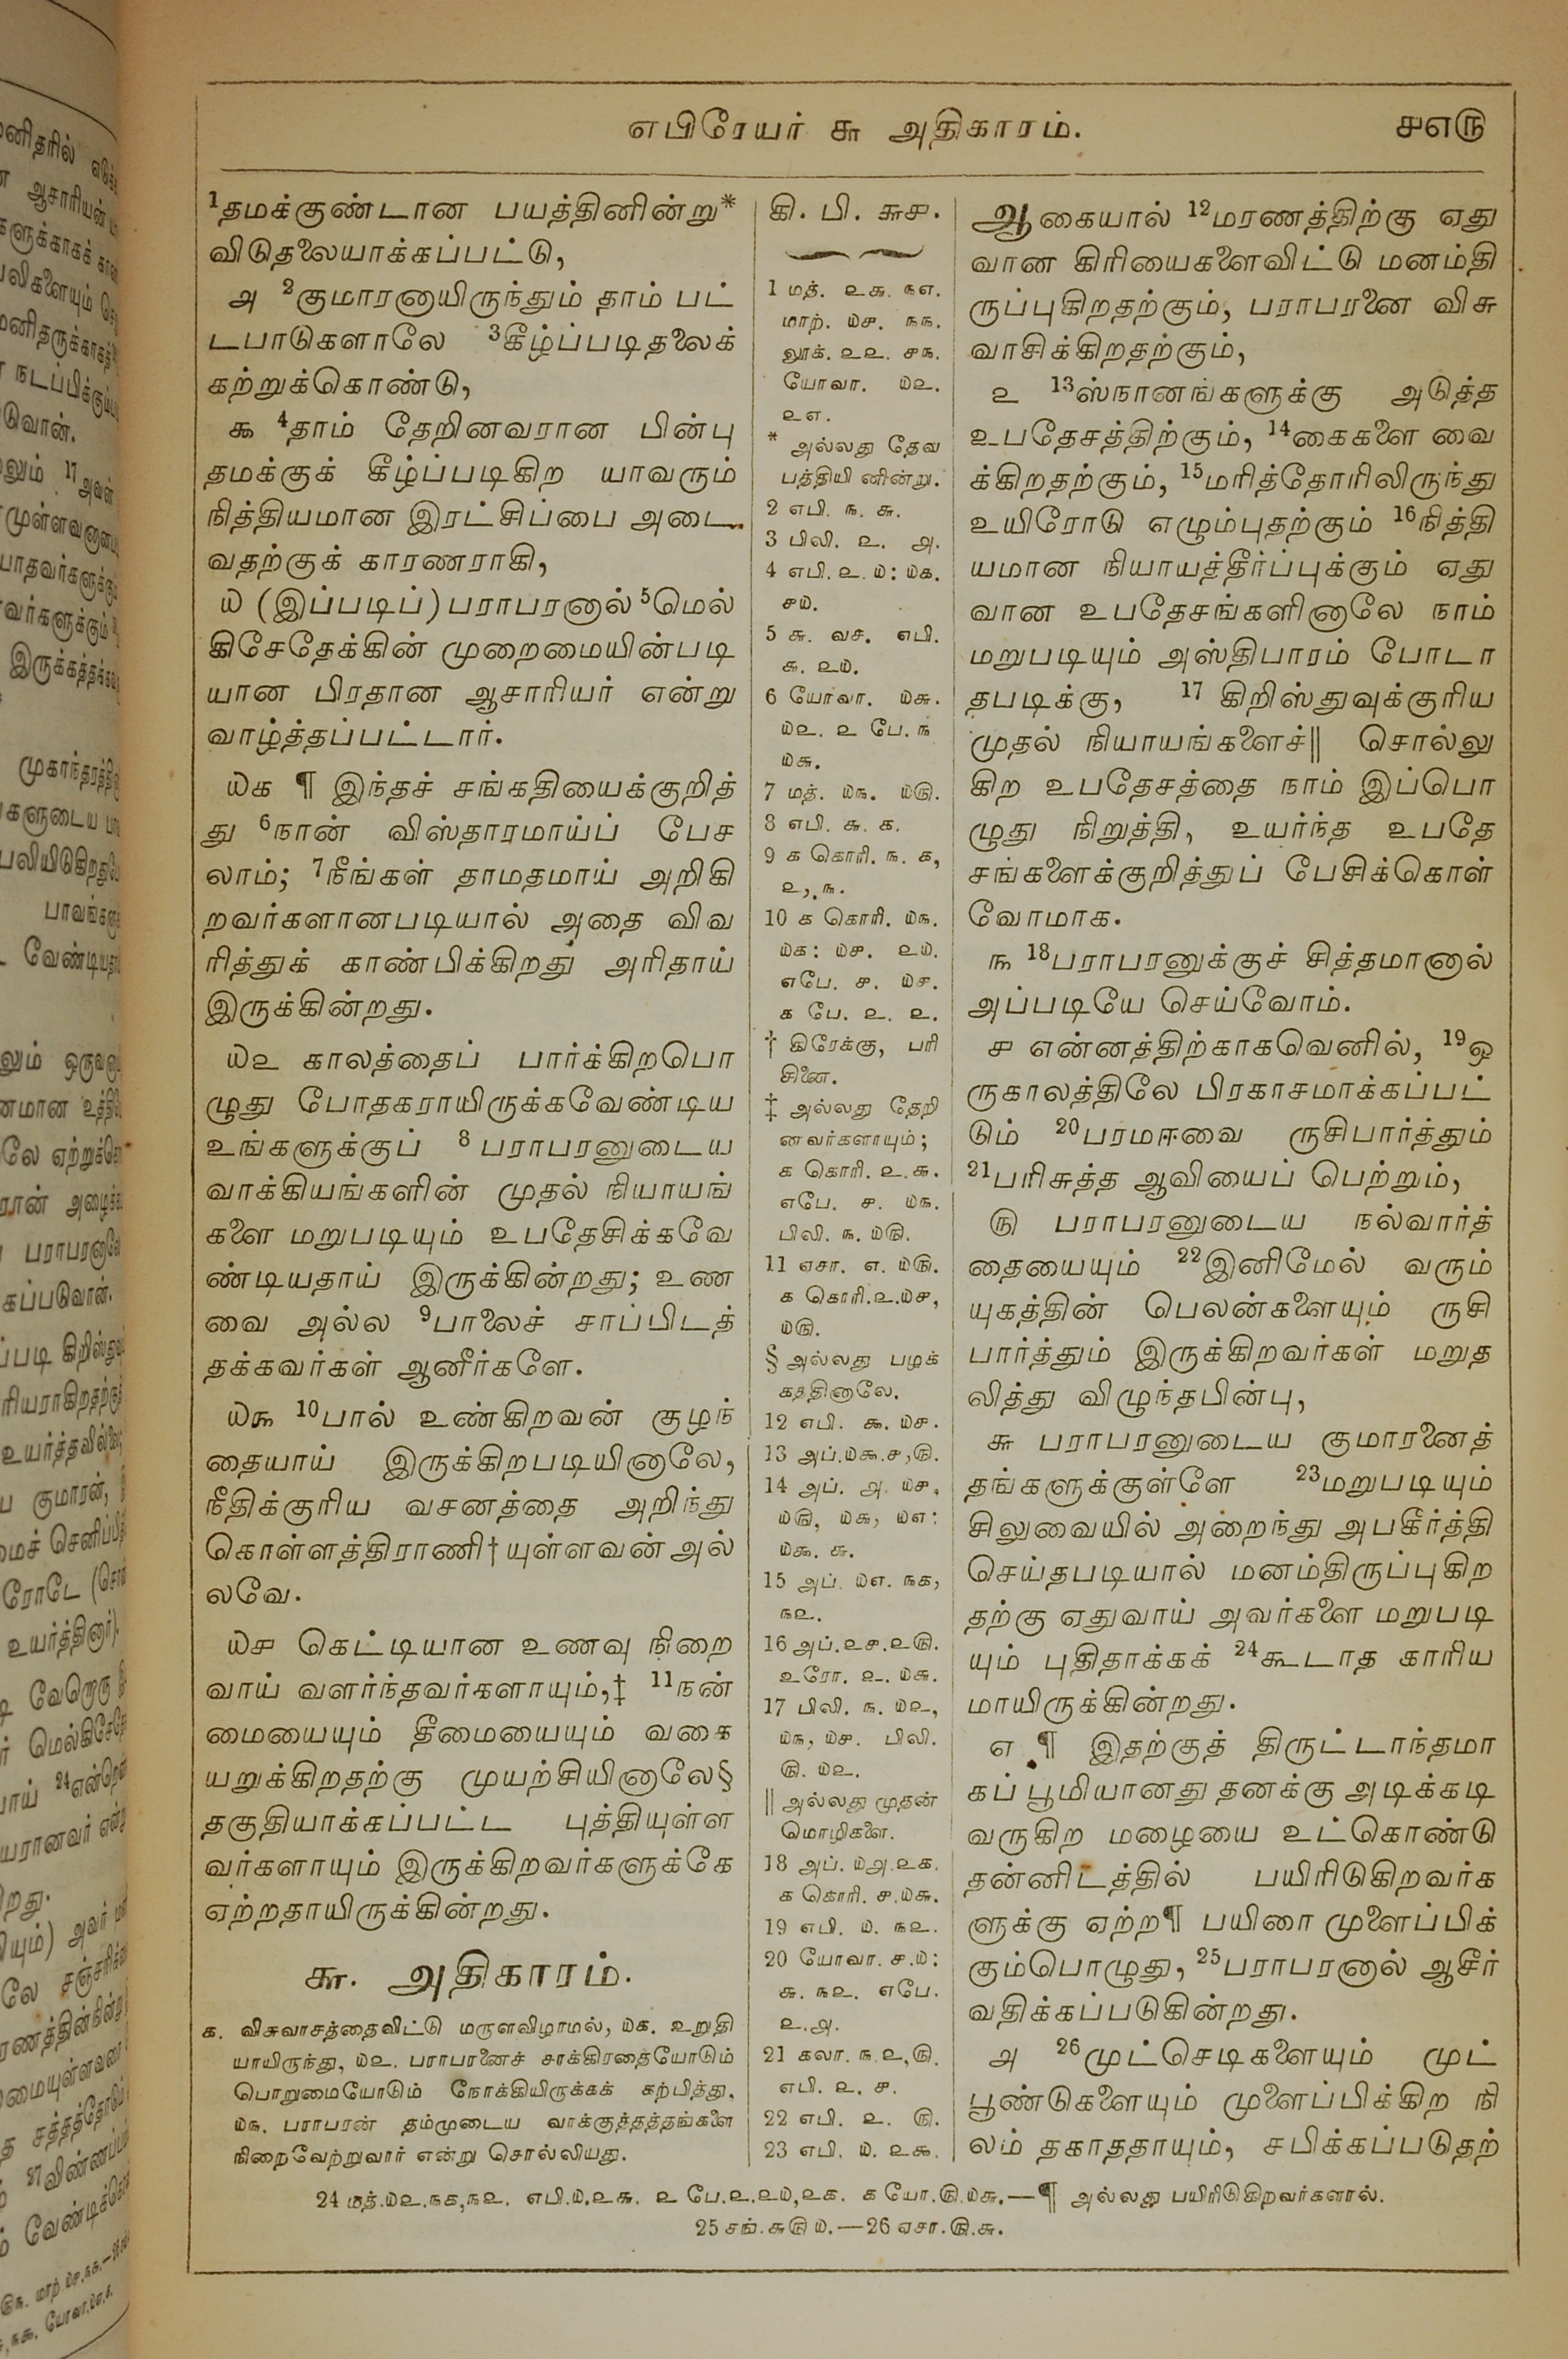 எபிரேயர் ௬ அதிகாரம்.
௪௭௫
1தமக்குண்டான பயத்தினின்று*
விடுதலையாக்கப்பட்டு,
௮ 2குமாரனாயிருந்தும் தாம் பட்
டபாடுகளாலே 3கீழ்ப்படிதலைக்
கற்றுக்கொண்டு,
௯ 4தாம் தேறினவரான பின்பு
தமக்குக் கீழ்ப்படிகிற யாவரும்
நித்தியமான இரட்சிப்பை அடை
வதற்குக் காரணராகி,
௰ (இப்படிப்) பராபரனால் 5மெல்
கிசேதேக்கின் முறைமையின்படி
யான பிரதான ஆசாரியர் என்று
வாழ்த்தப்பட்டார்.
௰௧ ¶ இந்தச் சங்கதியைக்குறித்
து 6நான் விஸ்தாரமாய்ப் பேச
லாம்; 7நீங்கள் தாமதமாய் அறிகி
றவர்களானபடியால் அதை விவ
ரித்துக் காண்பிக்கிறது அரிதாய்
இருக்கின்றது.
௰௨ காலத்தைப் பார்க்கிறபொ
ழுது போதகராயிருக்கவேண்டிய
உங்களுக்குப் 8 பராபரனுடைய
வாக்கியங்களின் முதல் நியாயங்
களை மறுபடியும் உபதேசிக்கவே
ண்டியதாய் இருக்கின்றது; உண
வை அல்ல 9பாலைச் சாப்பிடத்
தக்கவர்கள் ஆனீர்களே.
௰௩ 10பால் உண்கிறவன் குழந்
தையாய் இருக்கிறபடியினாலே,
நீதிக்குரிய வசனத்தை அறிந்து
கொள்ளத்திராணி†யுள்ளவன் அல்
லவே.
௰௪ கெட்டியான உணவு நிறை
வாய் வளர்ந்தவர்களாயும்,‡ 11நன்
மையையும் தீமையையும் வகை
யறுக்கிறதற்கு முயற்சியினாலே§
தகுதியாக்கப்பட்ட புத்தியுள்ள
வர்களாயும் இருக்கிறவர்களுக்கே
ஏற்றதாயிருக்கின்றது.
௬. அதிகாரம்.
௧. விசுவாசத்தைவிட்டு மருளவிழாமல், ௰௧. உறுதி
யாயிருந்து, ௰௨. பராபரனைச் சாக்கிரதையோடும்
பொறுமையோடும் நோக்கியிருக்கக் கற்பித்து,
௰௩. பராபரன் தம்முடைய வாக்குத்தத்தங்களை
நிறைவேற்றுவார் என்று சொல்லியது.
கி. பி. ௬௪.
1 மத். ௨௬. ௩௭.
மாற். ௰௪. ௩௩.
லூக். ௨௨. ௪௩.
யோவா. ௰௨.
௨௭.
* அல்லது தேவ
பத்தியினின்று.
2 எபி. ௩. ௬.
3 பிலி. ௨. ௮.
4 எபி. ௨. ௰: ௰௧.
௪௰.
5 ௬. வச. எபி.
௬. ௨௰.
6 யோவா. ௰௬.
௰௨. ௨ பே. ௩
௰௬.
7 மத். ௰௩. ௰௫.
8 எபி. ௬. ௧.
9 ௧ கொரி. ௩. ௧,
௨, ௩.
10 ௧ கொரி. ௰௩.
௰௧: ௰௪. ௨௰.
எபே. ௪. ௰௪.
௧ பே. ௨. ௨.
† கிரேக்கு, பரி
சினை.
‡ அல்லது தேறி
னவர்களாயும்;
௧ கொரி. ௨. ௬.
எபே. ௪. ௰௩.
பிலி. ௩. ௰௫.
11 ஏசா. ௭. ௰௫.
௧ கொரி.௨.௰௪,
௰௫.
§ அல்லது பழக்
கத்தினாலே.
12 எபி. ௯. ௰௪.
13 அப்.௰௯.௪,௫.
14 அப். ௮. ௰௪,
௰௫, ௰௬, ௰௭:
௰௯. ௬.
15 அப். ௰௭. ௩௧,
௩௨.
16 அப்.௨௪.௨௫.
உரோ. ௨. ௰௬.
17 பிலி. ௩. ௰௨,
௰௩, ௰௪. பிலி.
௫. ௰௨.
‖ அல்லது முதன்
மொழிகளை.
18 அப். ௰௮.௨௧.
௧ கொரி. ௪.௰௬.
19 எபி. ௰. ௩௨.
20 யோவா. ௪.௰:
௬. ௩௨. எபே.
௨.௮.
21 கலா. ௩.௨,௫.
எபி. ௨. ௪.
22 எபி. ௨. ௫.
23 எபி. ௰. ௨௯.
ஆகையால் 12மரணத்திற்கு ஏது
வான கிரியைகளைவிட்டு மனம்தி
ருப்புகிறதற்கும், பராபரனை விசு
வாசிக்கிறதற்கும்,
௨ 13ஸ்நானங்களுக்கு அடுத்த
உபதேசத்திற்கும், 14கைகளை வை
க்கிறதற்கும், 15மரித்தோரிலிருந்து
உயிரோடு எழும்புதற்கும் 16நித்தி
யமான நியாயத்தீர்ப்புக்கும் ஏது
வான உபதேசங்களினாலே நாம்
மறுபடியும் அஸ்திபாரம் போடா
தபடிக்கு, 17 கிறிஸ்துவுக்குரிய
முதல் நியாயங்களைச்‖ சொல்லு
கிற உபதேசத்தை நாம் இப்பொ
ழுது நிறுத்தி, உயர்ந்த உபதே
சங்களைக்குறித்துப் பேசிக்கொள்
வோமாக.
௩ 18பராபரனுக்குச் சித்தமானால்
அப்படியே செய்வோம்.
௪ என்னத்திற்காகவெனில், 19ஒ
ருகாலத்திலே பிரகாசமாக்கப்பட்
டும் 20பரமஈவை ருசிபார்த்தும்
21பரிசுத்த ஆவியைப் பெற்றும்,
௫ பராபரனுடைய நல்வார்த்
தையையும் 22இனிமேல் வரும்
யுகத்தின் பெலன்களையும் ருசி
பார்த்தும் இருக்கிறவர்கள் மறுத
லித்து விழுந்தபின்பு,
௬ பராபரனுடைய குமாரனைத்
தங்களுக்குள்ளே 23மறுபடியும்
சிலுவையில் அறைந்து அபகீர்த்தி
செய்தபடியால் மனம்திருப்புகிற
தற்கு ஏதுவாய் அவர்களை மறுபடி
யும் புதிதாக்கக் 24கூடாத காரிய
மாயிருக்கின்றது.
௭ ¶ இதற்குத் திருட்டாந்தமா
கப் பூமியானது தனக்கு அடிக்கடி
வருகிற மழையை உட்கொண்டு
தன்னிடத்தில் பயிரிடுகிறவர்க
ளுக்கு ஏற்ற¶ பயிரை முளைப்பிக்
கும்பொழுது, 25பராபரனால் ஆசீர்
வதிக்கப்படுகின்றது.
௮ 26முட்செடிகளையும் முட்
பூண்டுகளையும் முளைப்பிக்கிற நி
லம் தகாததாயும், சபிக்கப்படுதற்
24 மத்.௰௨.௩௧,௩௨. எபி.௰.௨௬. ௨ பே.௨.௨௰,௨௧. ௧ யோ.௫.௰௬.—¶ அல்லது பயிரிடுகிறவர்களால்.
25 சங்.௬௫ ௰.—26 ஏசா.௫.௬.